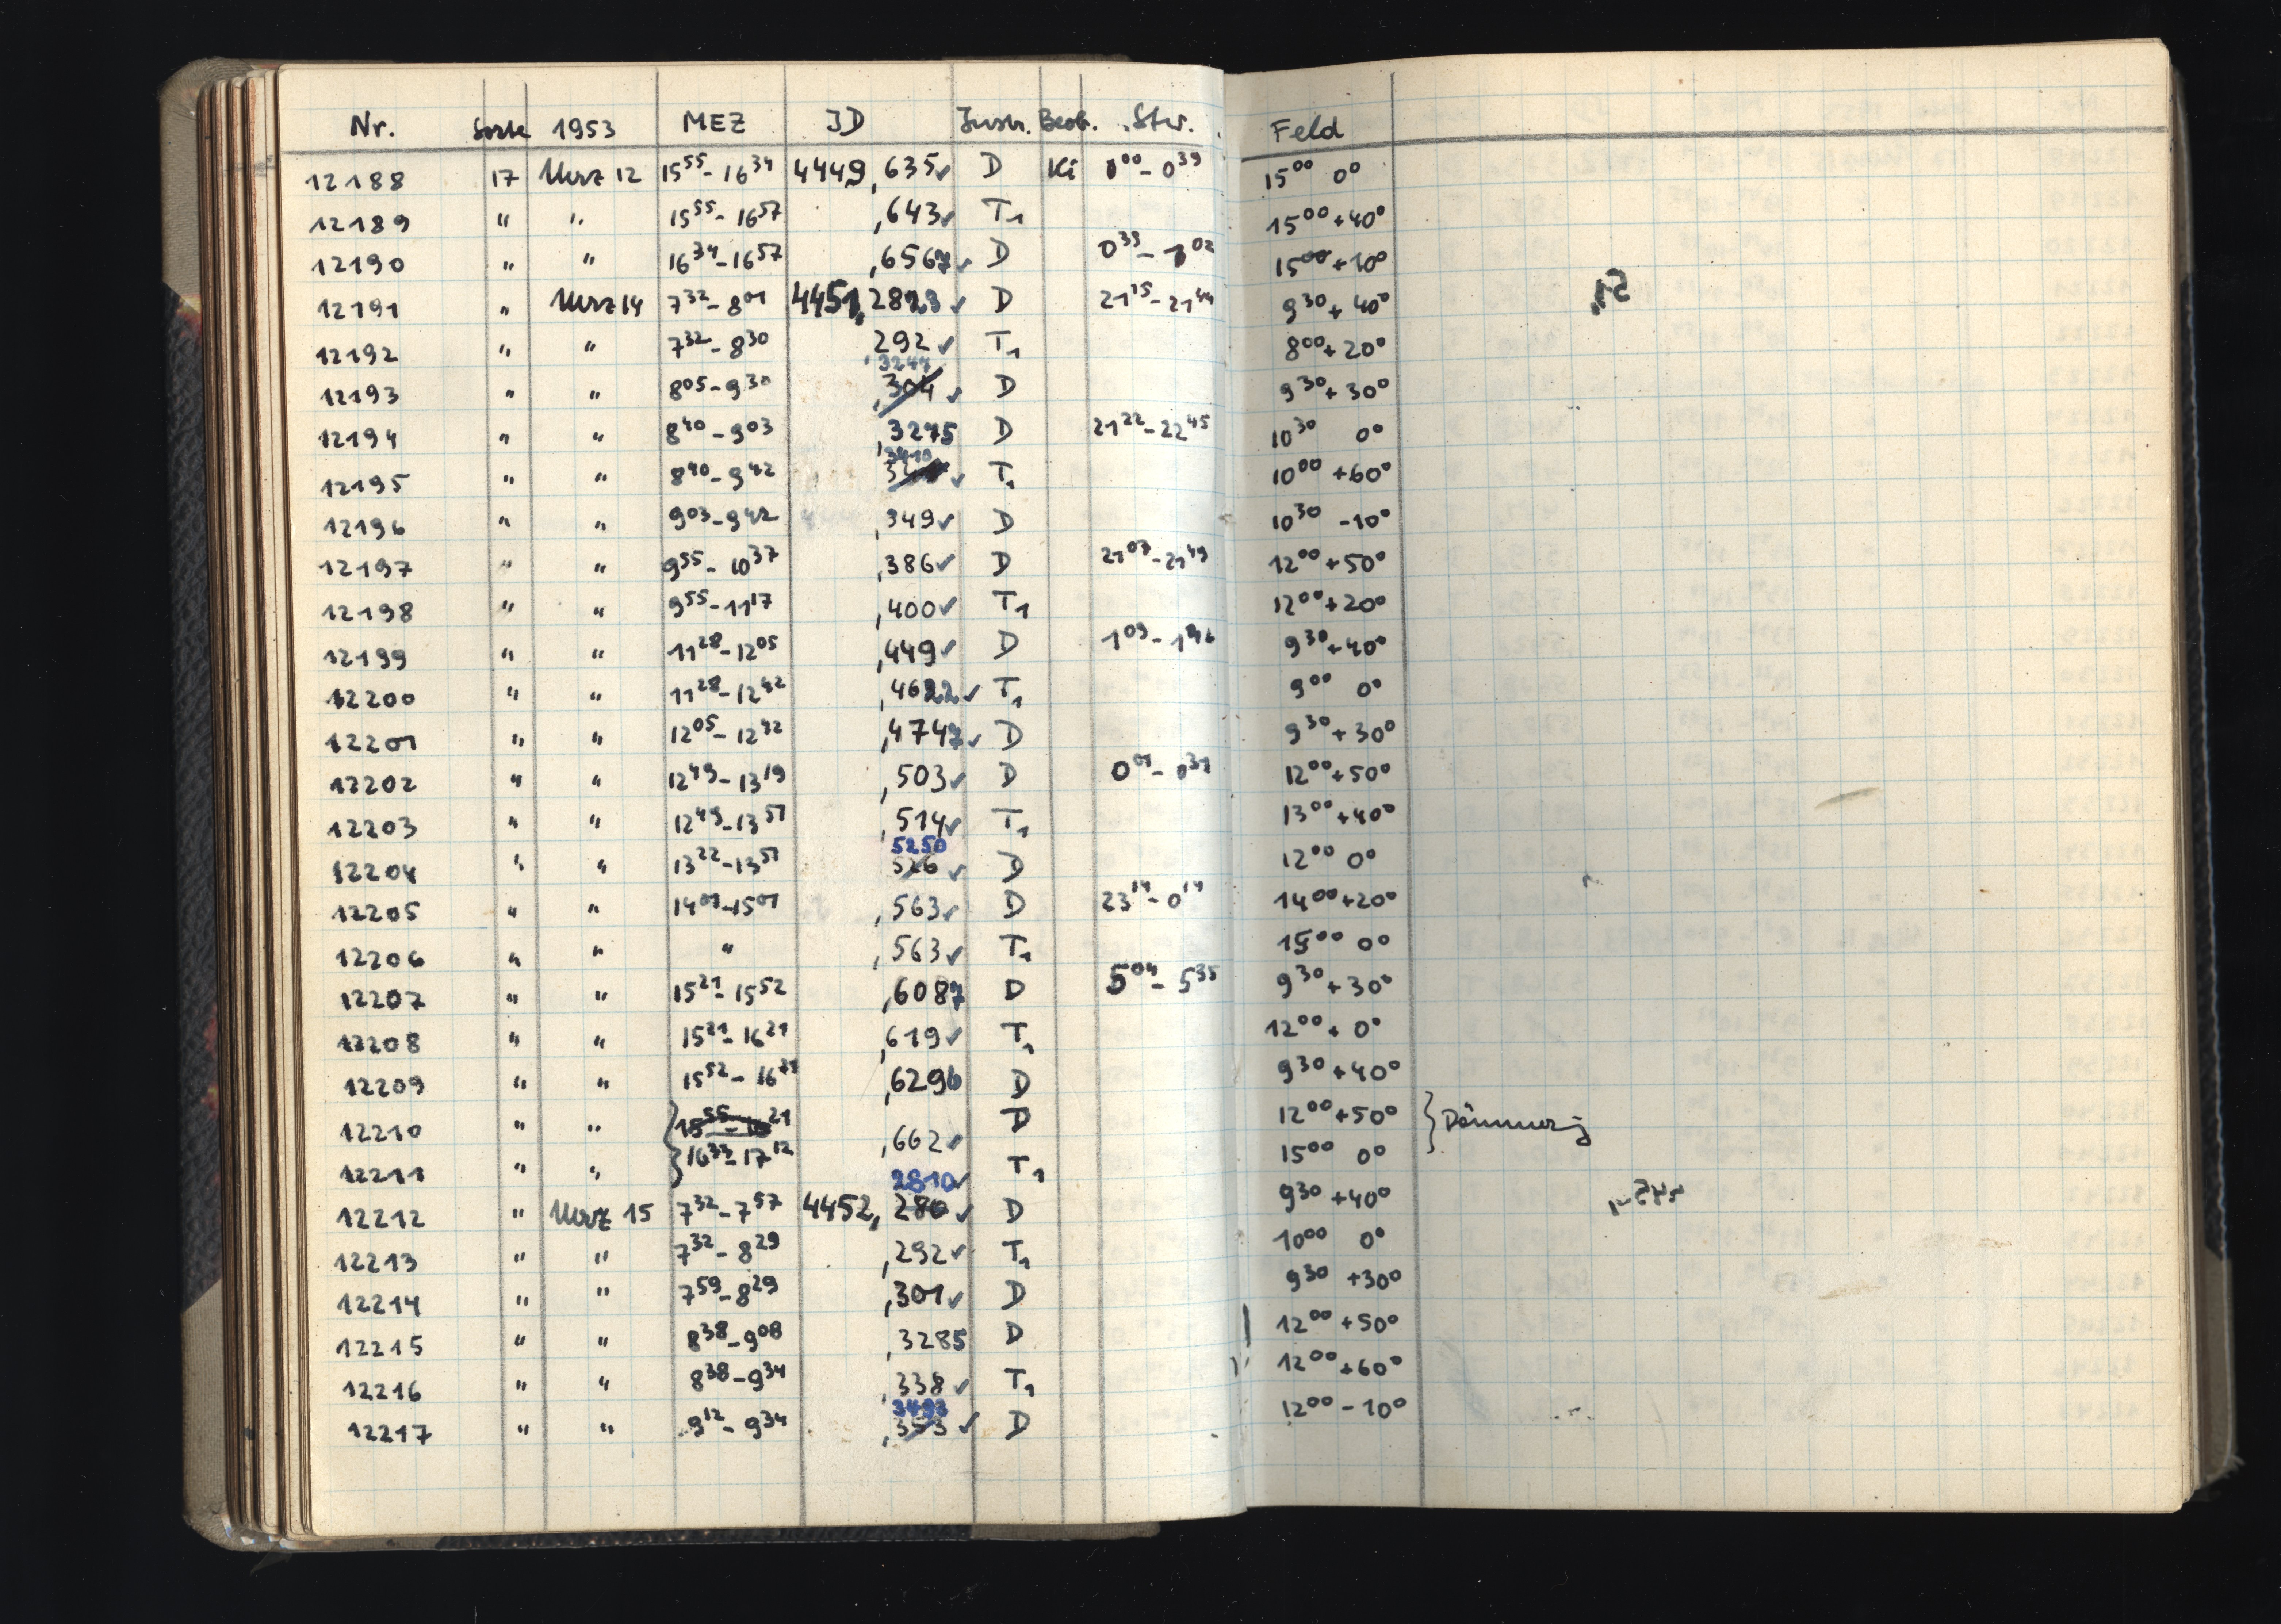 Nr. Sorte 1953 MEZ JD Instr. Beob. Stw. Feld
12188 17 März 12 15⁵⁵-16³⁴ 4449,635✓ D Ki 0⁰⁰-0³⁹ 15⁰⁰ 0°
12189 " " 15⁵⁵-16⁵⁷ ,643✓ T₁ 15⁰⁰+40°
12190 " " 16³⁴-16⁵⁷ ,6567✓ D 0³⁹-1⁰² 15⁰⁰+10°
12191 " März 14 7³²-8⁰¹ 4451,2823✓ D 21¹⁵-21⁴⁴ 9³⁰+40°
12192 " " 7³²-8³⁰ 292✓ T₁ 8⁰⁰+20°
,3244
12193 " " 8⁰⁵-9³⁰ ,304✓ D 9³⁰+30°
12194 " " 8⁴⁰-9⁰³ ,3275 D 21²²-22⁴⁵ 10³⁰ 0°
,3410
12195 " " 8⁴⁰-9⁴² ✓ T₁ 10⁰⁰+60°
12196 " " 9⁰³-9⁴² ,349✓ D 10³⁰-10°
12197 " " 9⁵⁵-10³⁷ ,386✓ D 21⁰⁷-21⁴⁹ 12⁰⁰+50°
12198 " " 9⁵⁵-11¹⁷ ,400✓ T₁ 12⁰⁰+20°
12199 " " 11²⁸-12⁰⁵ ,449✓ D 1⁰⁹-1⁴⁶ 9³⁰+40°
12200 " " 11²⁸-12⁴² ,4622✓ T₁ 9⁰⁰ 0°
12201 " " 12⁰⁵-12⁴² ,4747✓ D 9³⁰+30°
12202 " " 12⁴⁹-13¹⁹ ,503✓ D 0⁰¹-0³¹ 12⁰⁰+50°
12203 " " 12⁴⁹-13⁵¹ ,514✓ T₁ 13⁰⁰+40°
5250
12204 " " 13²²-13⁵¹ 526✓ D 12⁰⁰ 0°
12205 " " 14⁰¹-15⁰¹ ,563✓ D 23¹⁴-0¹⁴ 14⁰⁰+20°
12206 " " " ,563✓ T₁ 15⁰⁰ 0°
12207 " " 15²¹-15⁵² ,6087 D 5⁰⁴-5³⁵ 9³⁰+30°
12208 " " 15²¹-16²¹ ,619✓ T₁ 12⁰⁰+0°
12209 " " 15⁵²-16²¹ ,6296 D 9³⁰+40°
12210 " " 15⁵⁵-16²¹ ,662✓ D 12⁰⁰+50° } Dämmerg
12211 " " 16³³-17¹² T₁ 15⁰⁰ 0°
2810✓
12212 " März 15 7³²-7⁵⁷ 4452,280✓ D 9³⁰+40°
12213 " " 7³²-8²⁹ ,292✓ T₁ 10⁰⁰ 0°
12214 " " 7⁵⁹-8²⁹ ,301✓ D 9³⁰+30°
12215 " " 8³⁸-9⁰⁸ ,3285 D 12⁰⁰+50°
12216 " " 8³⁸-9³⁴ ,338✓ T₁ 12⁰⁰+60°
3493
12217 " " 9¹²-9³⁴ ,353✓ D 12⁰⁰-10°